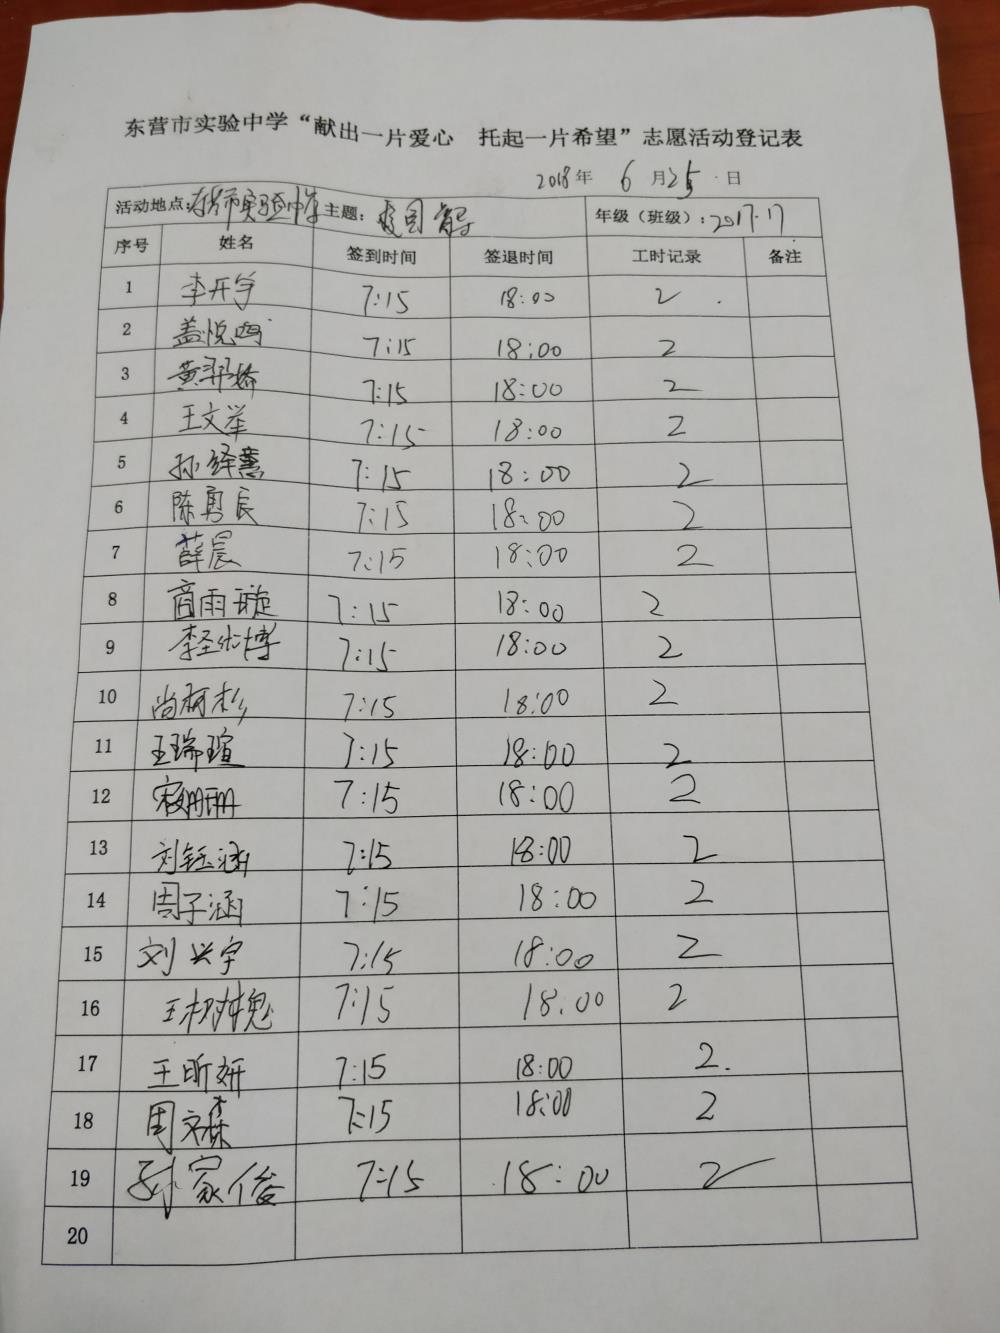 东营市实验中学“献出一片爱心 托起一片希望”志愿活动登记表
2018年 6月25日
活动地点: 东营市实验中学 主题: 校园 年级（班级）: 2017.17
序号 姓名 签到时间 签退时间 工时记录 备注
1 李开宇 7:15 18:00 2
2 盖悦鸣 7:15 18:00 2
3 黄羿 7:15 18:00 2
4 王文举 7:15 18:00 2
5 孙绎熏 7:15 18:00 2
6 陈勇辰 7:15 18:00 2
7 薛晨 7:15 18:00 2
8 商雨璇 7:15 18:00 2
9 李圣博 7:15 18:00 2
10 尚柯杉 7:15 18:00 2
11 王瑞瑄 7:15 18:00 2
12 寇珊珊 7:15 18:00 2
13 刘钰涵 7:15 18:00 2
14 周子涵 7:15 18:00 2
15 刘兴宇 7:15 18:00 2
16 王树槐 7:15 18:00 2
17 王昕妍 7:15 18:00 2.
18 周文森 7:15 18:00 2
19 孙家俊 7:15 18:00 2
20